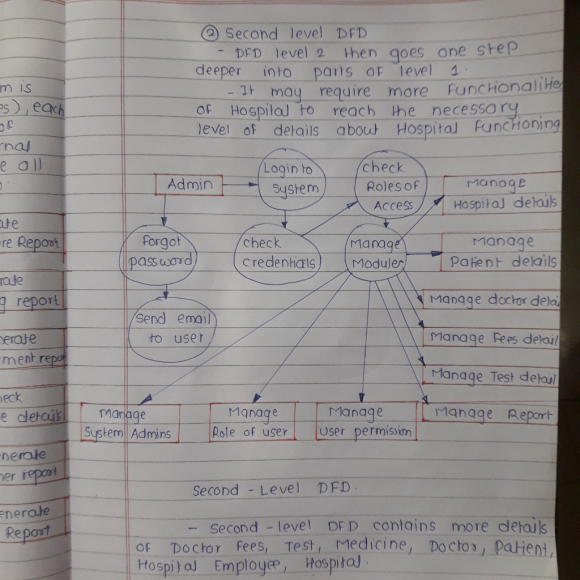 ② Second level DFD
- DFD level 2 then goes one step
deeper into parts of level 1.
- It may require more functionalities
of Hospital to reach the necessary
level of details about Hospital functioning
Admin
Login to
system
check
Roles of
Access
Manage
Hospital details
forgot
password
check
credentials
Manage
Modules
Manage
Patient details
send email
to user
Manage doctor detai
Manage Fees detail
Manage Test detail
Manage Report
Manage
System Admins
Manage
Role of user
Manage
User permission
Second - Level DFD.
- Second -level DFD contains more details
of Doctor fees, Test, Medicine, Doctor, Patient,
Hospital Employee, Hospital.
m is
es), each
of
rnal
e all
ate
re Report
rate
g report
nerate
ment report
heck
e details
enerate
her report
enerate
Report